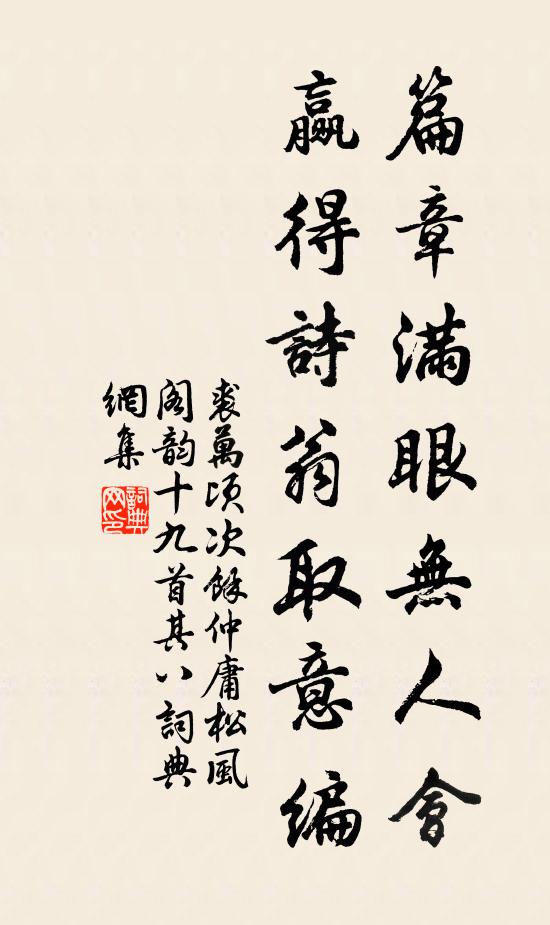 篇章滿眼無人會
贏得詩翁取意編
裘萬頃次餘仲庸松風
閣韵十九首其八詞典
網集
詞典
网印